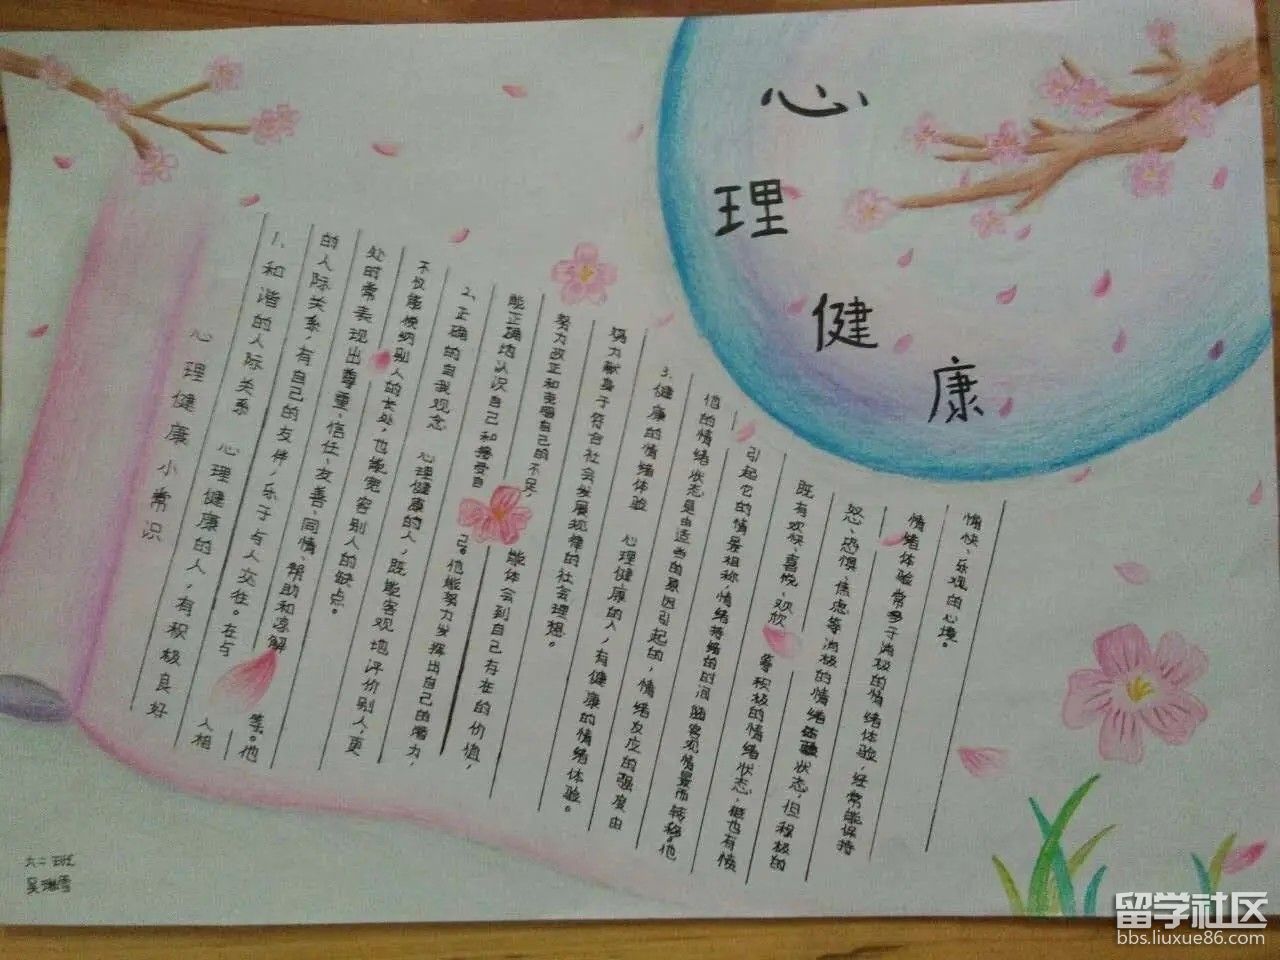 心理健康
心理健康小常识
1、和谐的人际关系 心理健康的人，有积极良好
的人际关系，有自己的友伴，乐于与人交往。在与人相
处时常表现出尊重、信任、友善、同情、帮助和谅解等。他
不仅能悦纳别人的长处，也能宽容别人的缺点。
2、正确的自我观念 心理健康的人，既能客观地评价别人，更
能正确地认识自己和接受自己。他能努力发挥出自己的潜力，
努力改正和克服自己的不足，能体会到自己存在的价值，
努力献身于符合社会发展规律的社会理想。
3、健康的情绪体验 心理健康的人，有健康的情绪体验。
他的情绪状态是由适当的原因引起的，情绪反应的强度由
引起它的情景相称，情绪持续的时间随客观情景而转移。他
既有欢快、喜悦、欢欣等积极的情绪状态，也有愤
怒、恐惧、焦虑等消极的情绪体验状态，但积极的
情绪体验常多于消极的情绪体验，经常能保持
愉快、乐观的心境。
六二班
留学社区
bbs.liuxue86.com